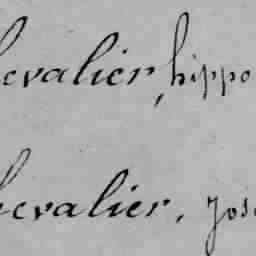 hevalier, hippo
hevalier, Jos